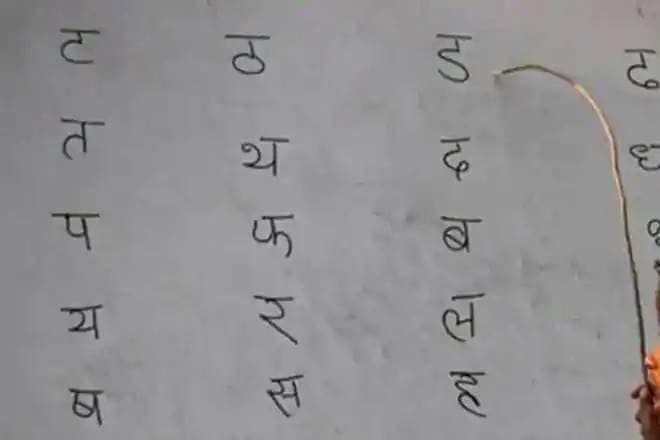 ट ठ ड ढ
त थ द ध
प फ ब
य र ल
ष स ह